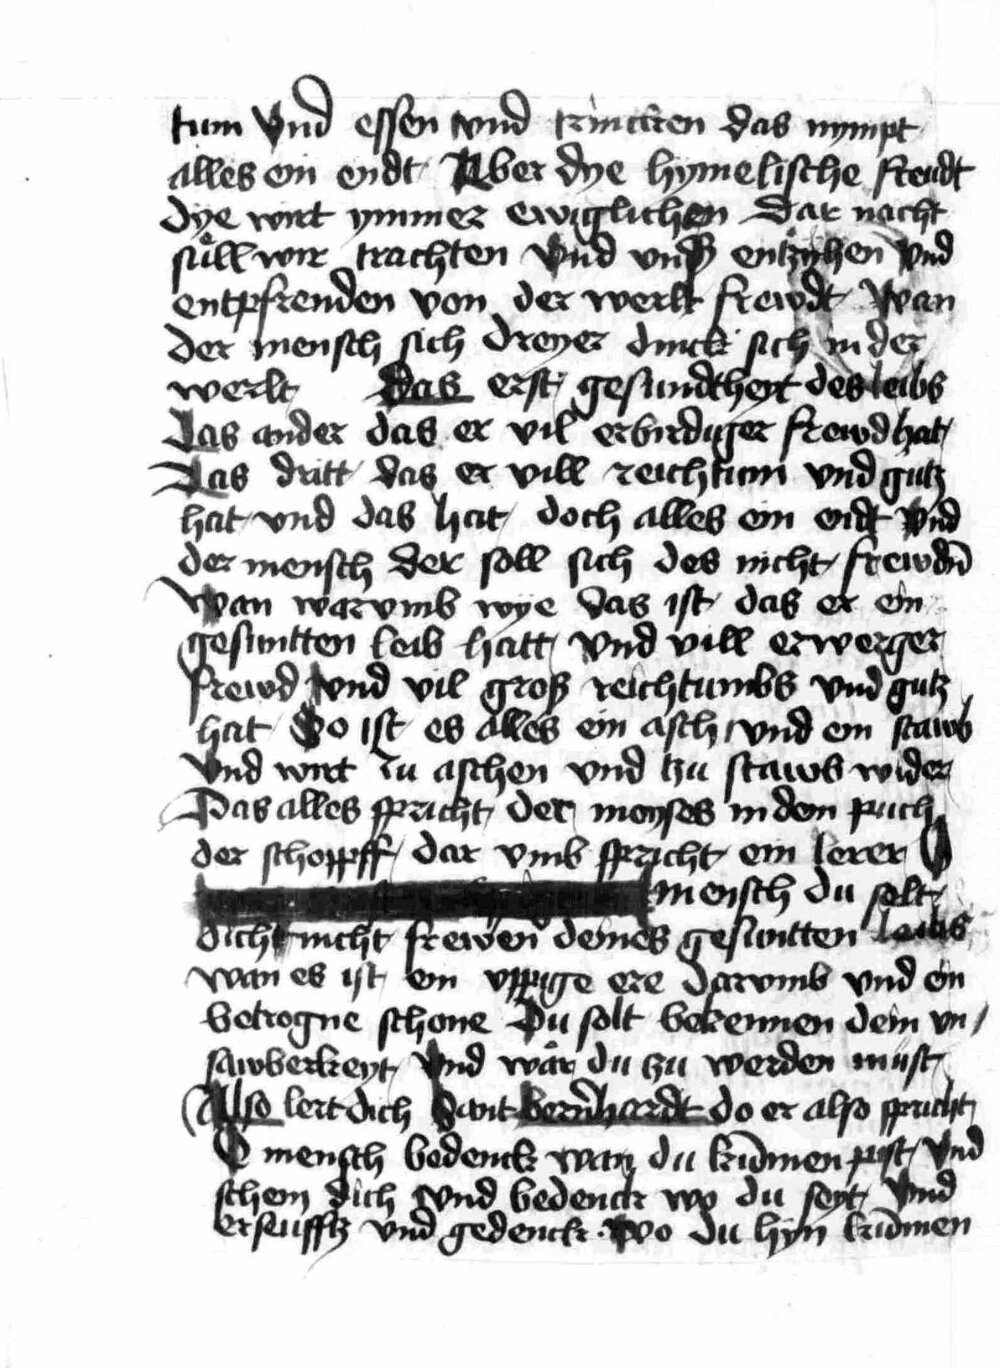 tum Vnd essen vnd trincken das nympt
alles ein endt Aber dye hymelische frewdt
dye wirt ymmer ewiglichen Dar nacht
süll wir trachten Vnd vnß entzihen Vnd
entpfrenden von der werlt frewdt Wan
der mensch sich dreyer dinck sich in der
werlt Das erst gesundtheyt des leibs
Das ander das er vil erbirdiger frewd hat
Das dritt das er vill reichtum vnd gutz
hat vnd das hat doch alles ein endt Vnd
der mensch der soll sich des nicht frewdn̄
Wan warvmb wye das ist das er ein
gesuntten leib hatt Vnd vill erwerger
frewd Vnd vil groß reichtumbs vnd gutz
hat So ist es alles ein asch vnd ein stawb
Vnd wirt zu aschen vnd tzu stawb wider
Das alles spricht der moyses in dem puch
der schopff dar vmb spricht ein lerer O
mensch du solt
dich nicht frewen deines gesuntten leibs
wan es ist ein vppige ere darvmb vnd ein
betrogne schone Du solt bekennen dein vn/
sawberkeyt Vnd wår du zu werden must
Also lert dich Sant bernhardt do er also spricht
O mensch bedenck wan du kūmen pist Vnd
schem dich Vnd bedenck wo du seyt Vnd
erseufftz vnd gedenck wo du hyn kūmen